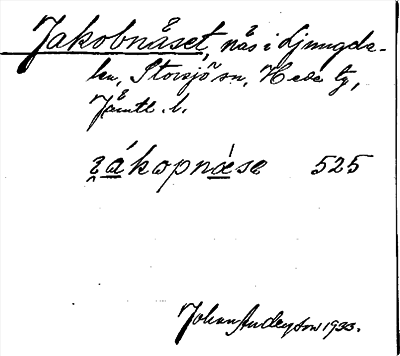 Jakobnåset, nås i Ljungda-
len, Storsjö sn, Hede tg,
Jämtl. l.
ʒákopnáse 525
Johan Anderson 1933.